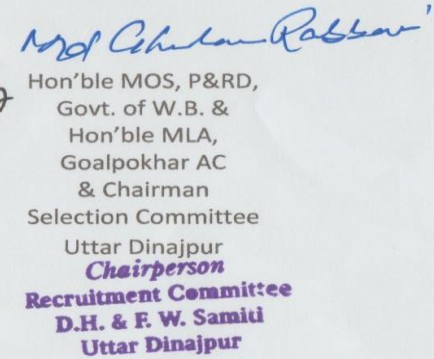 Md Ghulam Rabbani
Hon'ble MOS, P&RD,
Govt. of W.B. &
Hon'ble MLA,
Goalpokhar AC
& Chairman
Selection Committee
Uttar Dinajpur
Chairperson
Recruitment Committee
D.H. & F. W. Samiti
Uttar Dinajpur